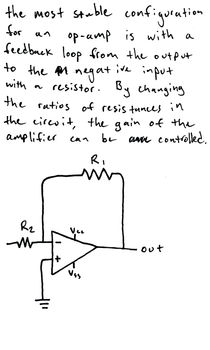 the most stable configuration
for an op-amp is with a
feedback loop from the output
to the negative input
with a resistor. By changing
the ratios of resistances in
the circuit, the gain of the
amplifier can be controlled.
R1
R2
Vcc
-
+
out
Vss